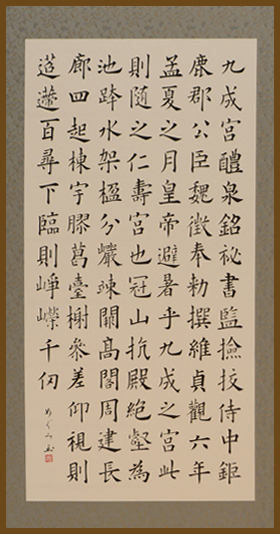 九成宮醴泉銘祕書監撿挍侍中鉅
鹿郡公臣魏徵奉勅撰維貞觀六年
孟夏之月皇帝避暑乎九成之宮此
則隨之仁壽宮也冠山抗殿絶壑為
池跨水架楹分巖竦闕髙閣周建長
廊四起棟宇膠葛臺榭參差仰視則
迢遰百尋下臨則崢嶸千仞